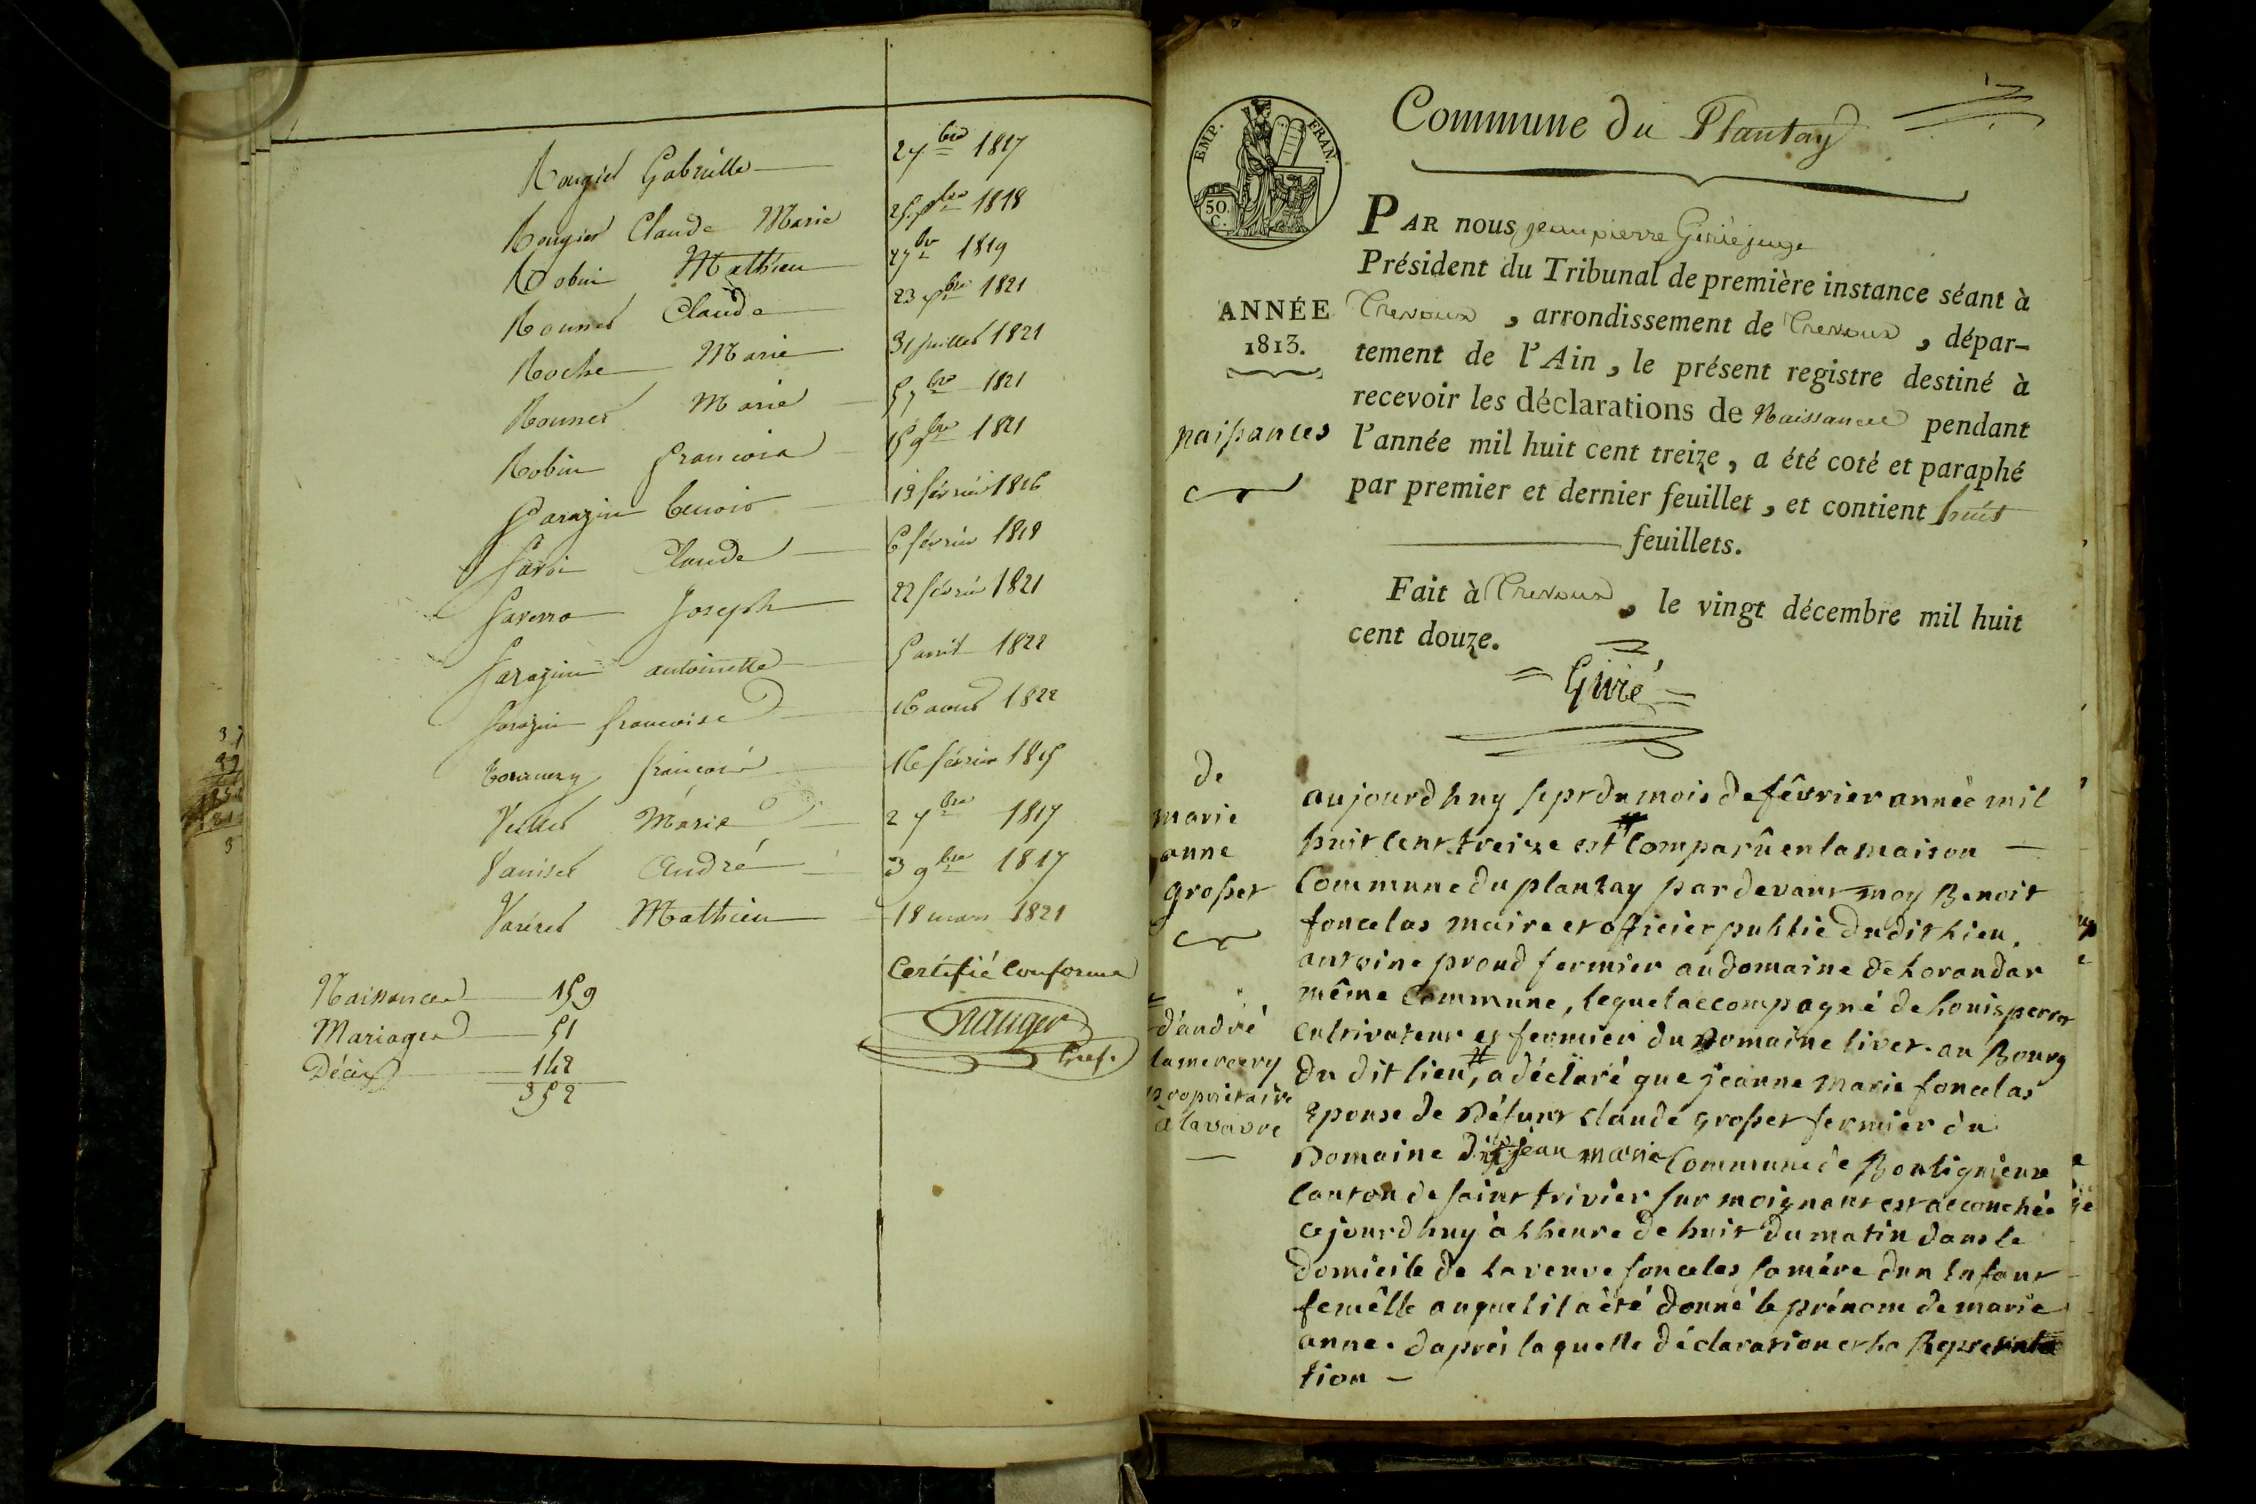 Rougier Gabrielle 27bre 1817
Rougier Claude Marie 1818
Robin Mathieu 1819
Claude 23 1821
Roche Marie 31 juillet 1821
Marie 1821
Robin francois 15 9bre 1821
Sarazin benoit 19 février 1816
Claude 6 février 1818
Joseph 22 février 1821
Sarazin antoinette 5 avril 1822
Sarazin francoise 16 aout 1822
francois 16 février 1815
Marie 2 7bre 1817
André 3 9bre 1817
Mathieu 18 mars 1821
Certifié Conforme
Naissances 159
Mariages 51
Décès 142
352
Commune du Plantay
EMP. FRAN.
50. C.
PAR nous jean pierre Giriè juge
Président du Tribunal de première instance séant à
Trevoux, arrondissement de Trevoux, dépar-
ANNÉE
1813.
tement de l'Ain, le présent registre destiné à
recevoir les déclarations de Naissances pendant
naissances
l'année mil huit cent treize, a été coté et paraphé
par premier et dernier feuillet, et contient huit
feuillets.
Fait à Trevoux, le vingt décembre mil huit
cent douze.
Girié
de
marie
anne
grosset
aujourdhuy sept du mois de février année mil
huit cent treize est comparû en la maison
Commune du plantay par devant moy Benoit
foncelas maire et officier public dudit lieu,
antoine proud fermier au domaine de
même Commune, lequel accompagné de Louis perret
cultivateur et fermier du Domaine livet au Bourg
d'andré
lamercery
propriétaire
a lavavre
du dit lieu, a déclaré que jeanne marie foncelas
épouse de défunt claude grosset fermier du
Domaine jean marie Commune de Bouligneux
Canton de saint trivier sur moignant est accouchée
cejourdhuy à lheure de huit du matin dans le
domicile de la veuve foncelas sa mère dun enfant
femêlle auquel il a été donné le prénom de marie
anne. daprès laquelle déclaration et la Représenta
tion